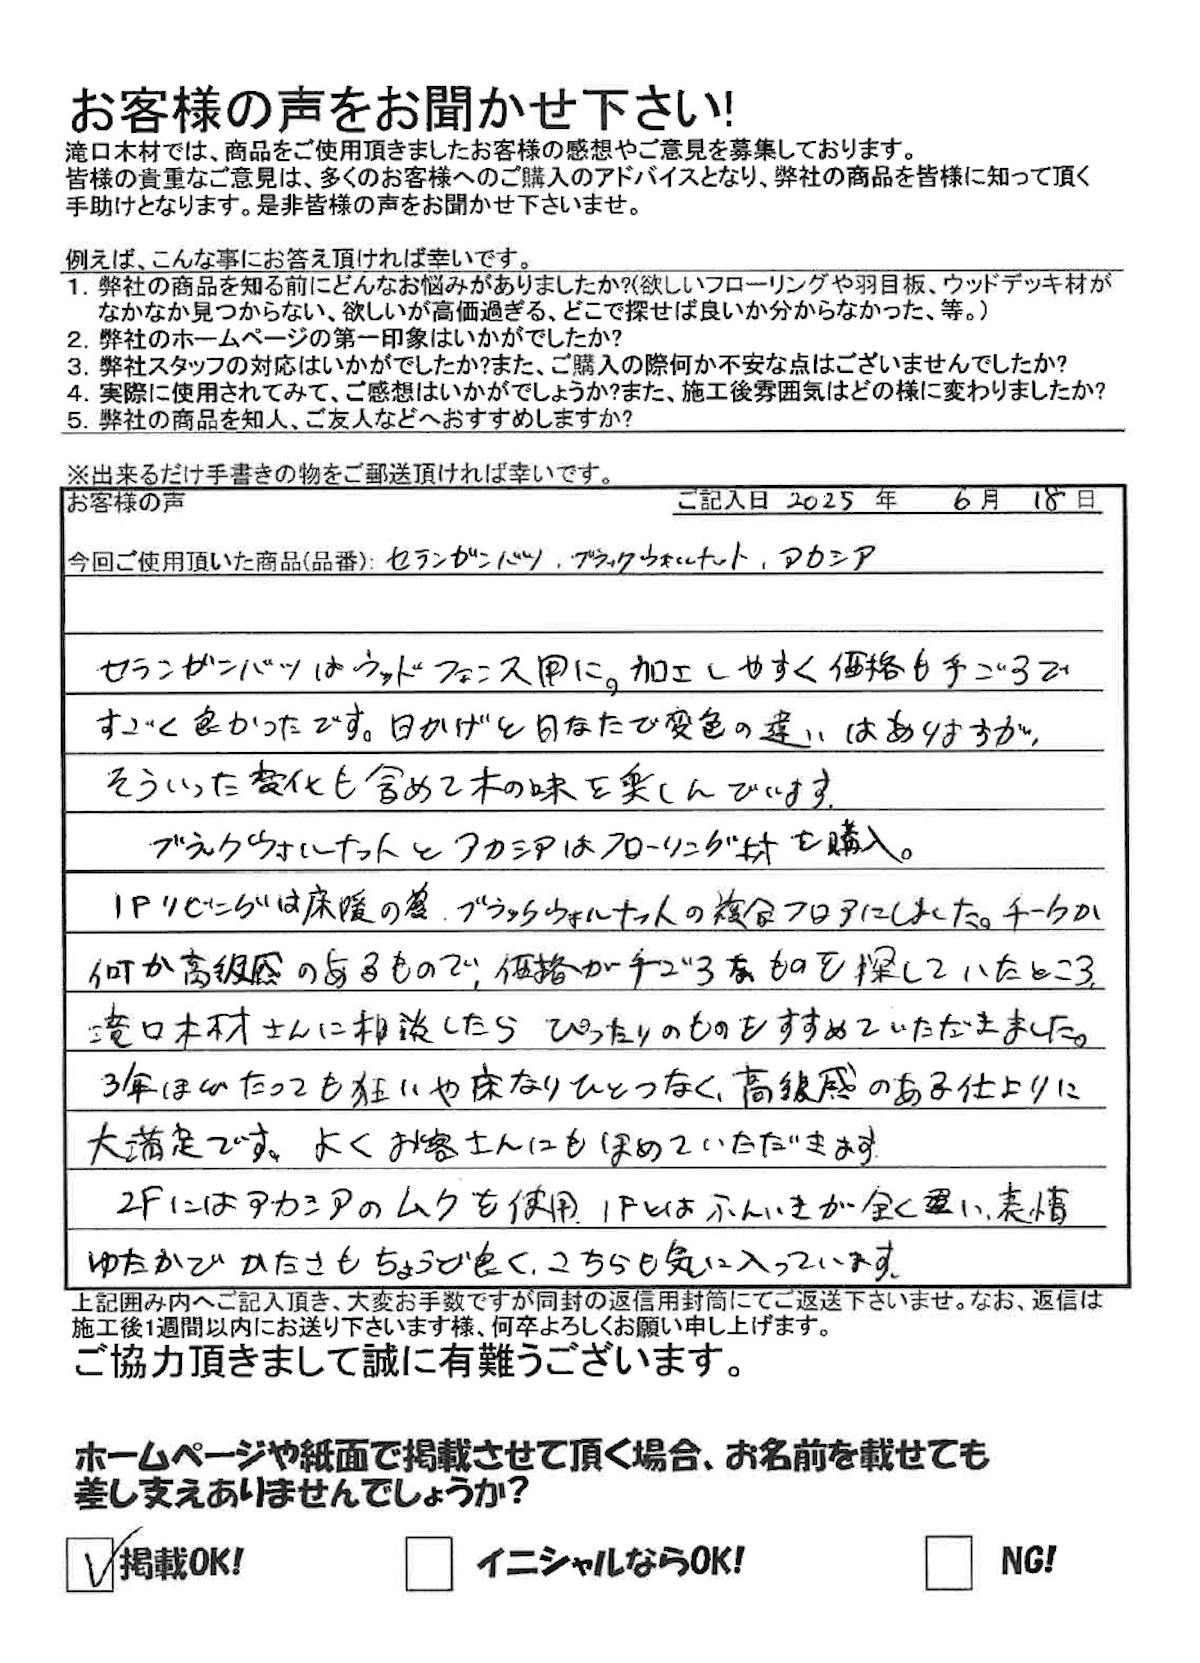 お客様の声をお聞かせ下さい!
滝口木材では、商品をご使用頂きましたお客様の感想やご意見を募集しております。
皆様の貴重なご意見は、多くのお客様へのご購入のアドバイスとなり、弊社の商品を皆様に知って頂く
手助けとなります。是非皆様の声をお聞かせ下さいませ。
例えば、こんな事にお答え頂ければ幸いです。
1. 弊社の商品を知る前にどんなお悩みがありましたか?(欲しいフローリングや羽目板、ウッドデッキ材が
なかなか見つからない、欲しいが高価過ぎる、どこで探せば良いか分からなかった、等。)
2. 弊社のホームページの第一印象はいかがでしたか?
3. 弊社スタッフの対応はいかがでしたか?また、ご購入の際何か不安な点はございませんでしたか?
4. 実際に使用されてみて、ご感想はいかがでしょうか?また、施工後雰囲気はどの様に変わりましたか?
5. 弊社の商品を知人、ご友人などへおすすめしますか?
※出来るだけ手書きの物をご郵送頂ければ幸いです。
お客様の声 ご記入日 2025 年 6月 18日
今回ご使用頂いた商品(品番): セランガンバツ、ブラックウォルナット、アカシア
セランガンバツはウッドフェンス用に。加工しやすく価格も手ごろで
すごく良かったです。日かげと日なたで変色の違いはありますが、
そういった変化も含めて木の味を楽しんでいます。
ブラックウォルナットとアカシアはフローリング材を購入。
1Fリビングは床暖の為、ブラックウォルナットの複合フロアにしました。チークか
何か高級感のあるもので、価格が手ごろなものを探していたところ、
滝口木材さんに相談したら ぴったりのものをすすめていただきました。
3年ほどたっても狂いや床なりひとつなく、高級感のある仕上りに
大満足です。よくお客さんにもほめていただきます。
2Fにはアカシアのムクを使用。1Fとはふんいきが全く違い、表情
ゆたかで かたさもちょうど良く、こちらも気に入っています。
上記囲み内へご記入頂き、大変お手数ですが同封の返信用封筒にてご返送下さいませ。なお、返信は
施工後1週間以内にお送り下さいます様、何卒よろしくお願い申し上げます。
ご協力頂きまして誠に有難うございます。
ホームページや紙面で掲載させて頂く場合、お名前を載せても
差し支えありませんでしょうか?
掲載OK! イニシャルならOK! NG!